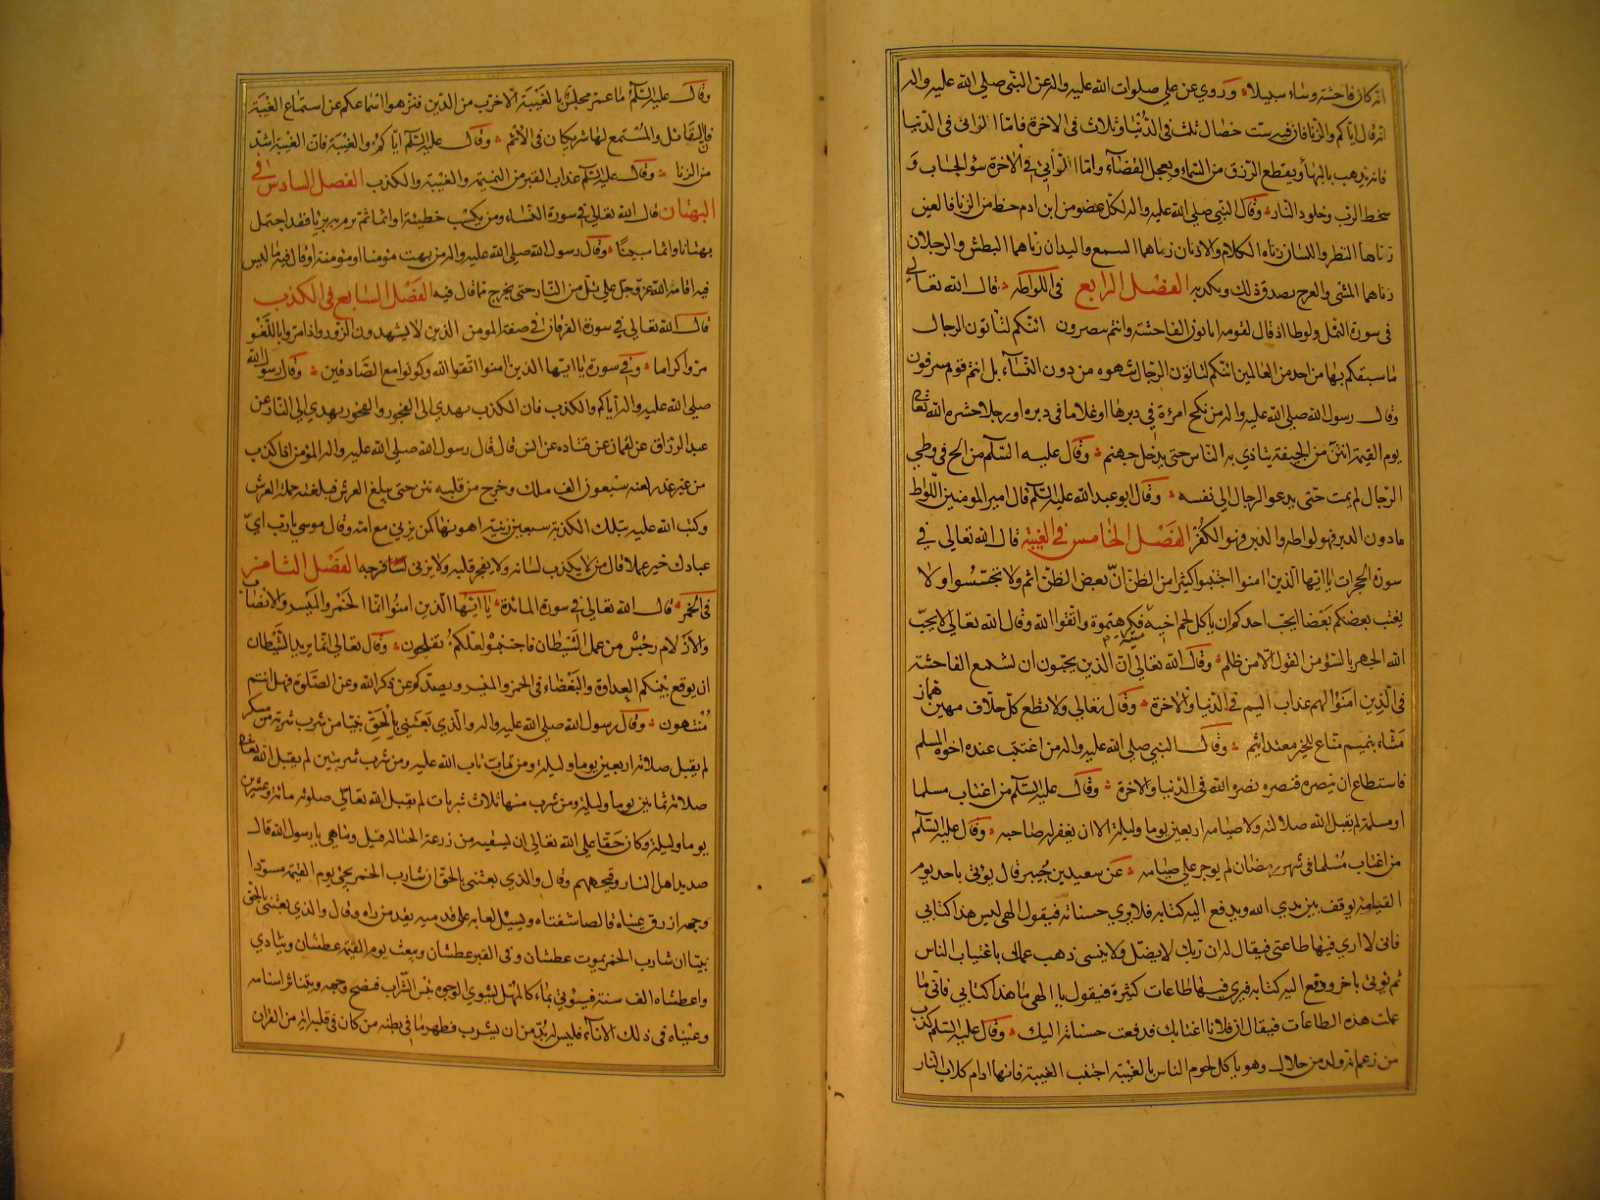 انه كان فاحشة وساء سبيلا وروي عن علي صلوات الله عليه واله عن النبي صلى الله عليه واله
انه قال اياكم والزنا فان فيه ست خصال ثلث في الدنيا وثلاث في الاخرة فاما اللواتي في الدنيا
فانه يذهب بالبهاء ويقطع الرزق من السماء ويعجل الفناء واما اللواتي في الاخرة سوء الحساب و
سخط الرب وخلود النار وقال النبي صلى الله عليه واله لكل عضو من ابن ادم حظ من الزنا فالعين
زناها النظر واللسان زناه الكلام والاذنان زناهما السمع واليدان زناهما البطش والرجلان
زناهما المشي والفرج يصدق ذلك ويكذبه الفصل الرابع في اللواطة قال الله تعالى
في سورة النمل ولوطا اذ قال لقومه اتاتون الفاحشة وانتم تبصرون ائنكم لتاتون الرجال
ما سبقكم بها من احد من العالمين ائنكم لتاتون الرجال شهوة من دون النساء بل انتم قوم مسرفون
وقال رسول الله صلى الله عليه واله من نكح امرءة في دبرها او غلاما في دبره او رجلا حشره الله تعالى
يوم القيمة انتن من الجيفة يتاذي به الناس حتى يدخل جهنم وقال عليه السلم من الح في وطي
الرجال لم يمت حتى يدعو الرجال الي نفسه وقال ابو عبد الله عليه السلم قال امير المومنين اللواط
مادون الدبر فهو لواطه والدبر فهو الكفر الفصل الخامس في الغيبة قال الله تعالى في
سورة الحجرات يا ايها الذين امنوا اجتنبوا كثيرا من الظن ان بعض الظن اثم ولا تجسسوا ولا
يغتب بعضكم بعضا ايحب احدكم ان ياكل لحم اخيه ميتا فكرهتموه واتقوا الله وقال الله تعالى لا يحب
الله الجهر بالسوء من القول الا من ظلم وقال الله تعالى ان الذين يحبون ان تشيع الفاحشة
في الذين امنوا لهم عذاب اليم في الدنيا والاخرة وقال تعالى ولا تطع كل حلاف مهين هماز
مشاء بنميم مناع للخير معتد اثيم وقال النبي صلى الله عليه واله من اغتيب عنده اخوه المسلم
فاستطاع ان ينصره فنصره نصره الله في الدنيا والاخرة وقال عليه السلم من اغتاب مسلما
او مسلمة لم يقبل الله صلاته ولا صيامه اربعين يوما وليلة الا ان يغفر له صاحبه وقال عليه السلم
من اغتاب مسلما في شهر رمضان لم يوجر على صيامه عن سعيد بن جبير قال يوتى باحد يوم
القيامة يوقف بين يدي الله ويدفع اليه كتابه فلا يري حسناته فيقول الهي ليس هذا كتابي
فاني لا اري فيها طاعتي فيقال له ان ربك لا يضل ولا ينسى ذهب عملك باغتياب الناس
ثم يوتى باخر ويدفع اليه كتابه فيري فيها طاعات كثيرة فيقول يا الهي ما هذا كتابي فاني ما
عملت هذه الطاعات فيقال ان فلانا اغتابك فدفعت حسناته اليك وقال عليه السلم كذب
من زعم انه ولد من حلال وهو ياكل لحوم الناس بالغيبة اجتنب الغيبة فانها ادام كلاب النار
وقال عليه السلم ما عمر مجلس بالغيبة الا خرب من الدين فنزهوا اسماعكم عن استماع الغيبة
فان القائل والمستمع لها شريكان في الاثم وقال عليه السلم اياكم والغيبة فان الغيبة اشد
من الزنا وقال عليه السلم عذاب القبر من النميمة والغيبة والكذب الفصل السادس في
البهتان قال الله تعالى في سورة النساء ومن يكسب خطيئة او اثما ثم يرم به بريا فقد احتمل
بهتانا واثما مبينا وقال رسول الله صلى الله عليه واله من بهت مؤمنا او مؤمنة او قال فيه ما ليس
فيه اقامه الله عز وجل على تل من النار حتى يخرج مما قال فيه الفصل السابع في الكذب
قال الله تعالى في سورة الفرقان في صفة المومن الذين لا يشهدون الزور واذا مروا باللغو
مروا كراما وفي سورة يا ايها الذين امنوا اتقوا الله وكونوا مع الصادقين وقال رسول الله
صلى الله عليه واله اياكم والكذب فان الكذب يهدي الى الفجور والفجور يهدي الى النار عن
عبد الرزاق عن نعمان عن قتاده عن انس قال قال رسول الله صلى الله عليه واله المؤمن اذا كذب
من غير عذر لعنه سبعون الف ملك وخرج من قلبه نتن حتى يبلغ العرش فيلعنه حملة العرش
وكتب الله عليه بتلك الكذبة سبعين زنية اهونها كمن يزني مع امه وقال موسي يا رب اي
عبادك خير عملا قال من لا يكذب لسانه ولا يفجر قلبه ولا يزني فرجه الفصل الثامن
في الخمر قال الله تعالى في سورة المائدة يا ايها الذين امنوا انما الخمر والميسر والانصاب
والازلام رجس من عمل الشيطان فاجتنبوه لعلكم تفلحون وقال تعالى انما يريد الشيطان
ان يوقع بينكم العداوة والبغضاء في الخمر والميسر ويصدكم عن ذكر الله وعن الصلوة فهل انتم
منتهون وقال رسول الله صلى الله عليه واله والذي بعثني بالحق نبيا من شرب شربة من مسكر
لم يقبل صلاته اربعين يوما وليلة ومن تاب تاب الله عليه ومن شرب شربتين لم يقبل الله تعالى
صلاته ثمانين يوما وليلة ومن شرب منها ثلاث شربات لم يقبل الله تعالى صلوته مائة وعشرين
يوما وليلة وكان حقا على الله تعالى ان يسقيه من زدغة الخباله قيل وما هي يا رسول الله قال
صديد اهل النار وقيحهم وقال والذي بعثني بالحق ان شارب الخمر يجئ يوم القيمة مسودا
وجهه ازرق عيناه قالصا شفتاه ويسيل لعابه على قدميه يقذر من راه وقال والذي بعثني بالحق
نبيا ان شارب الخمر يموت عطشان وفي القبر عطشان ويبعث يوم القيمة عطشان وينادي
واعطشاه الف سنة فيؤتى بماء كالمهل يشوي الوجوه بئس الشراب فينضج وجهه ويتناثر اسنانه
وعيناه في ذلك الاناء فليس له بد من ان يشرب فصهر ما في بطنه من كان في قلبه اية من القران